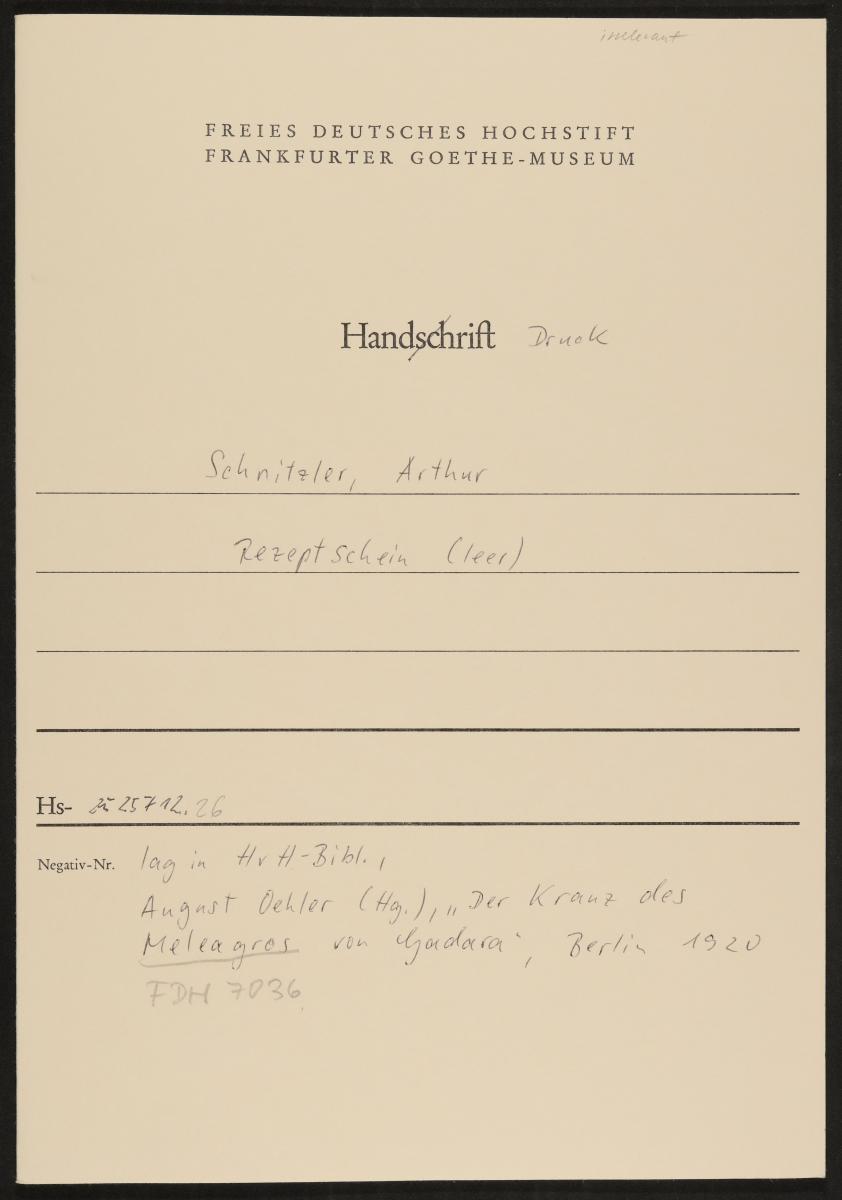 irrelevant
FREIES DEUTSCHES HOCHSTIFT
FRANKFURTER GOETHE-MUSEUM
Handschrift Druck
Schnitzler, Arthur
Rezeptschein (leer)
Hs- zu 25712.26
Negativ-Nr. lag in HvH-Bibl.,
August Oehler (Hg.), „Der Kranz des
Meleagros von Gadara“, Berlin 1920
FDH 7036